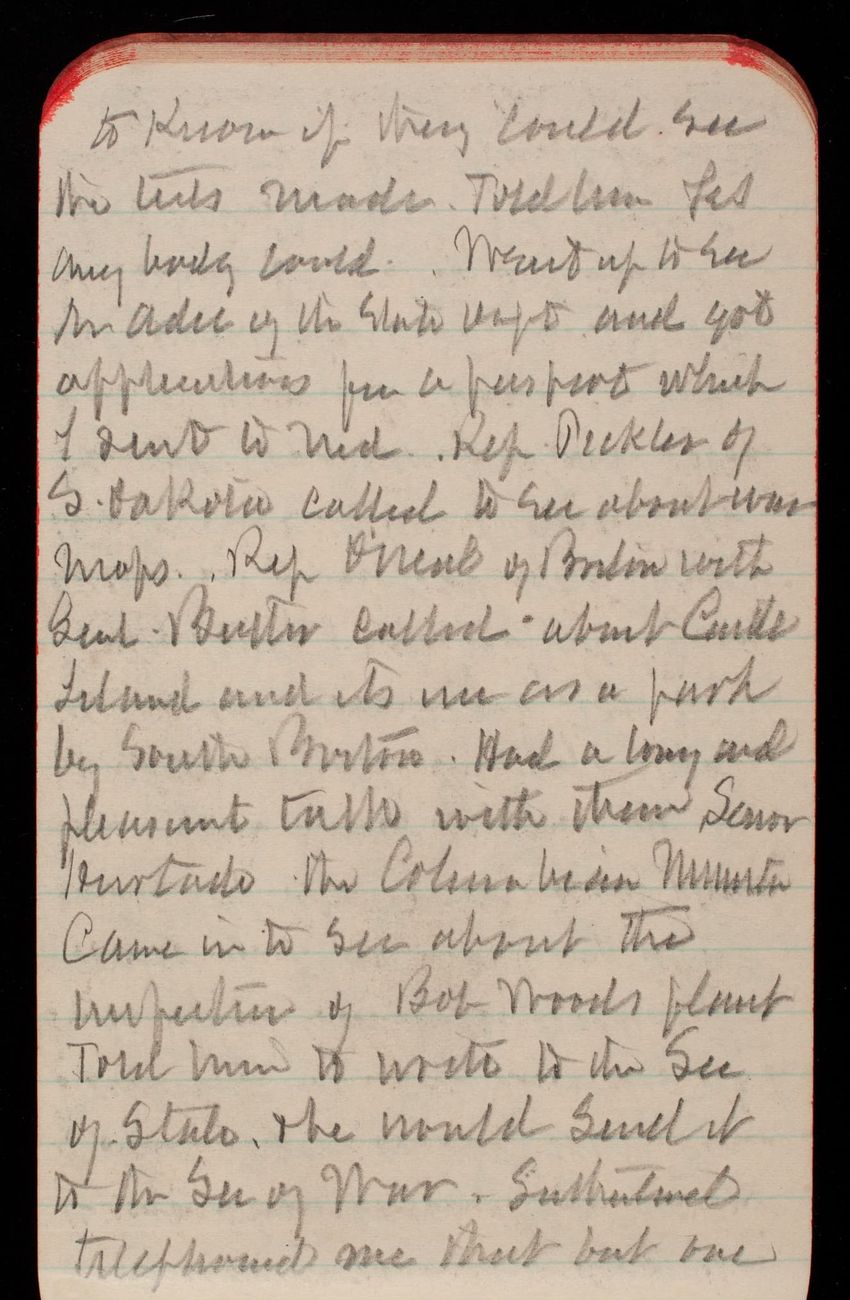 to know if they could see
the tests made. Told him Yes
any body could. . Went up to see
Mr Adee of the State Dept and got
applications for a passport which
I sent to Ned. . Rep Pickler of
S. Dakota called to see about war
maps. . Rep O'Neal of Boston with
Genl. Butler called about Castle
Island and its use as a park
by South Boston. Had a long and
pleasant talk with them Senor
Hurtado the Columbian Minister
Came in to see about the
inspection of Bob Woods plant
Told him to write to the Sec
of State. & he would send it
to the Sec of War.
telephoned me that but one